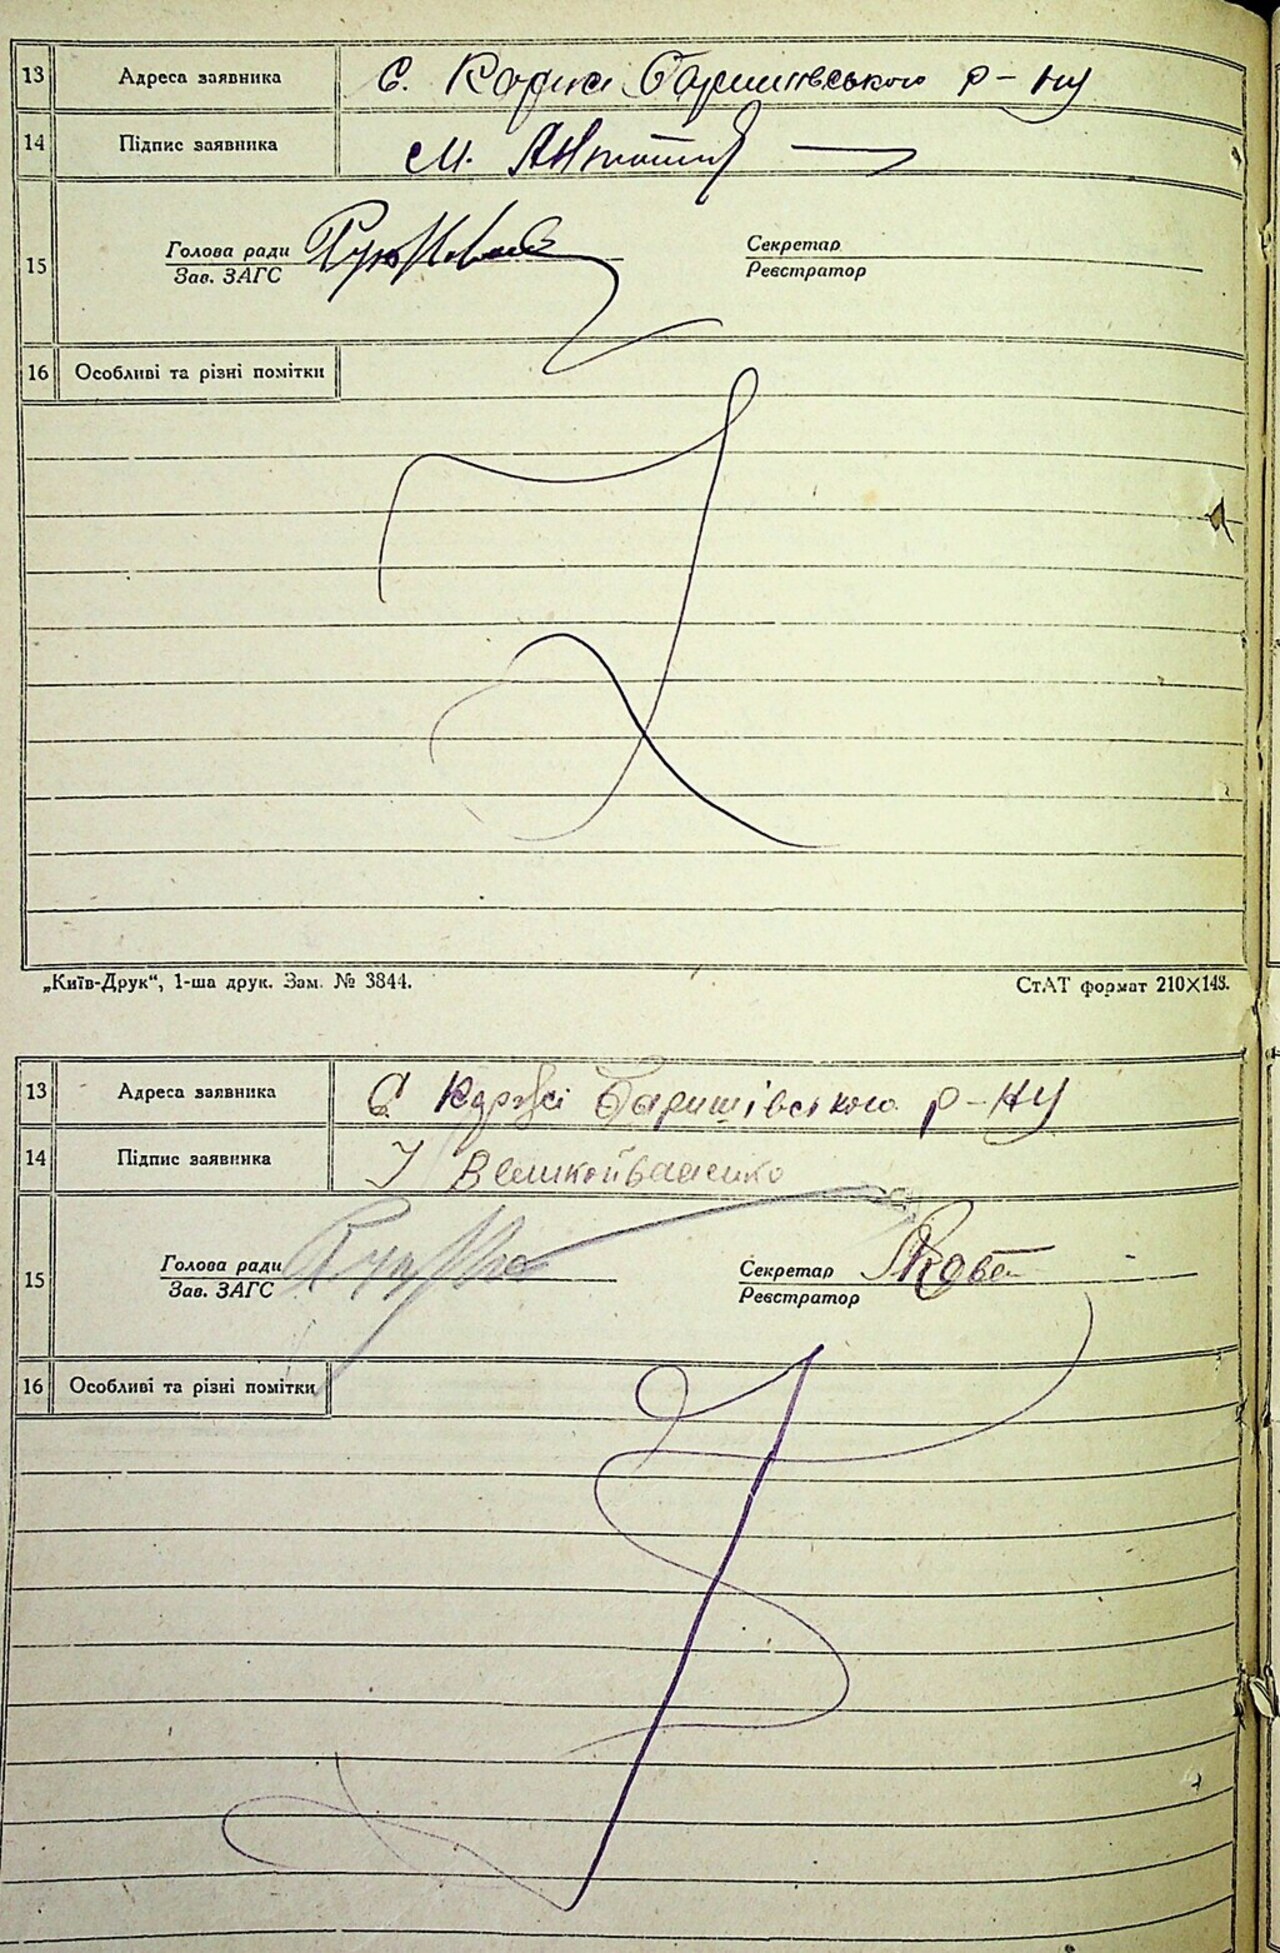 13 Адреса заявника С. Коржі Баришівського р-ну
14 Підпис заявника М.
15 Голова ради Секретар
Зав. ЗАГС Реєстратор
16 Особливі та різні помітки
„Київ-Друк“, 1-ша друк. Зам. № 3844. СтАТ формат 210×148.
13 Адреса заявника С Коржі Баришівського р-ну
14 Підпис заявника
15 Голова ради Секретар
Зав. ЗАГС Реєстратор
16 Особливі та різні помітки